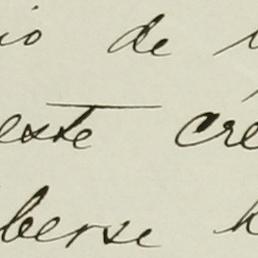 io de
este cré
berse h